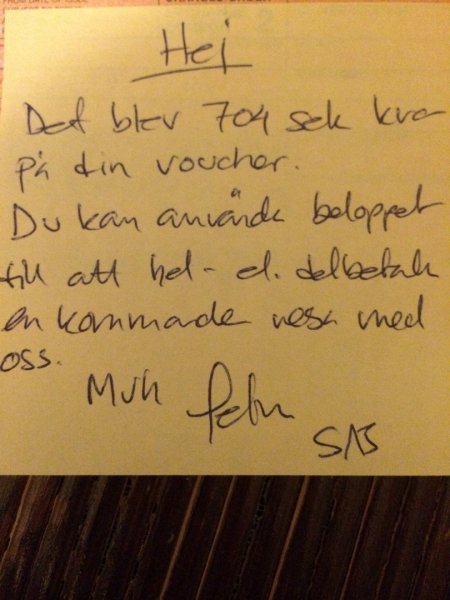 Hej
Det blev 704 sek kvar
på din voucher.
Du kan använda beloppet
till att hel- el. delbetala
en kommande resa med
oss.
Mvh
SAS